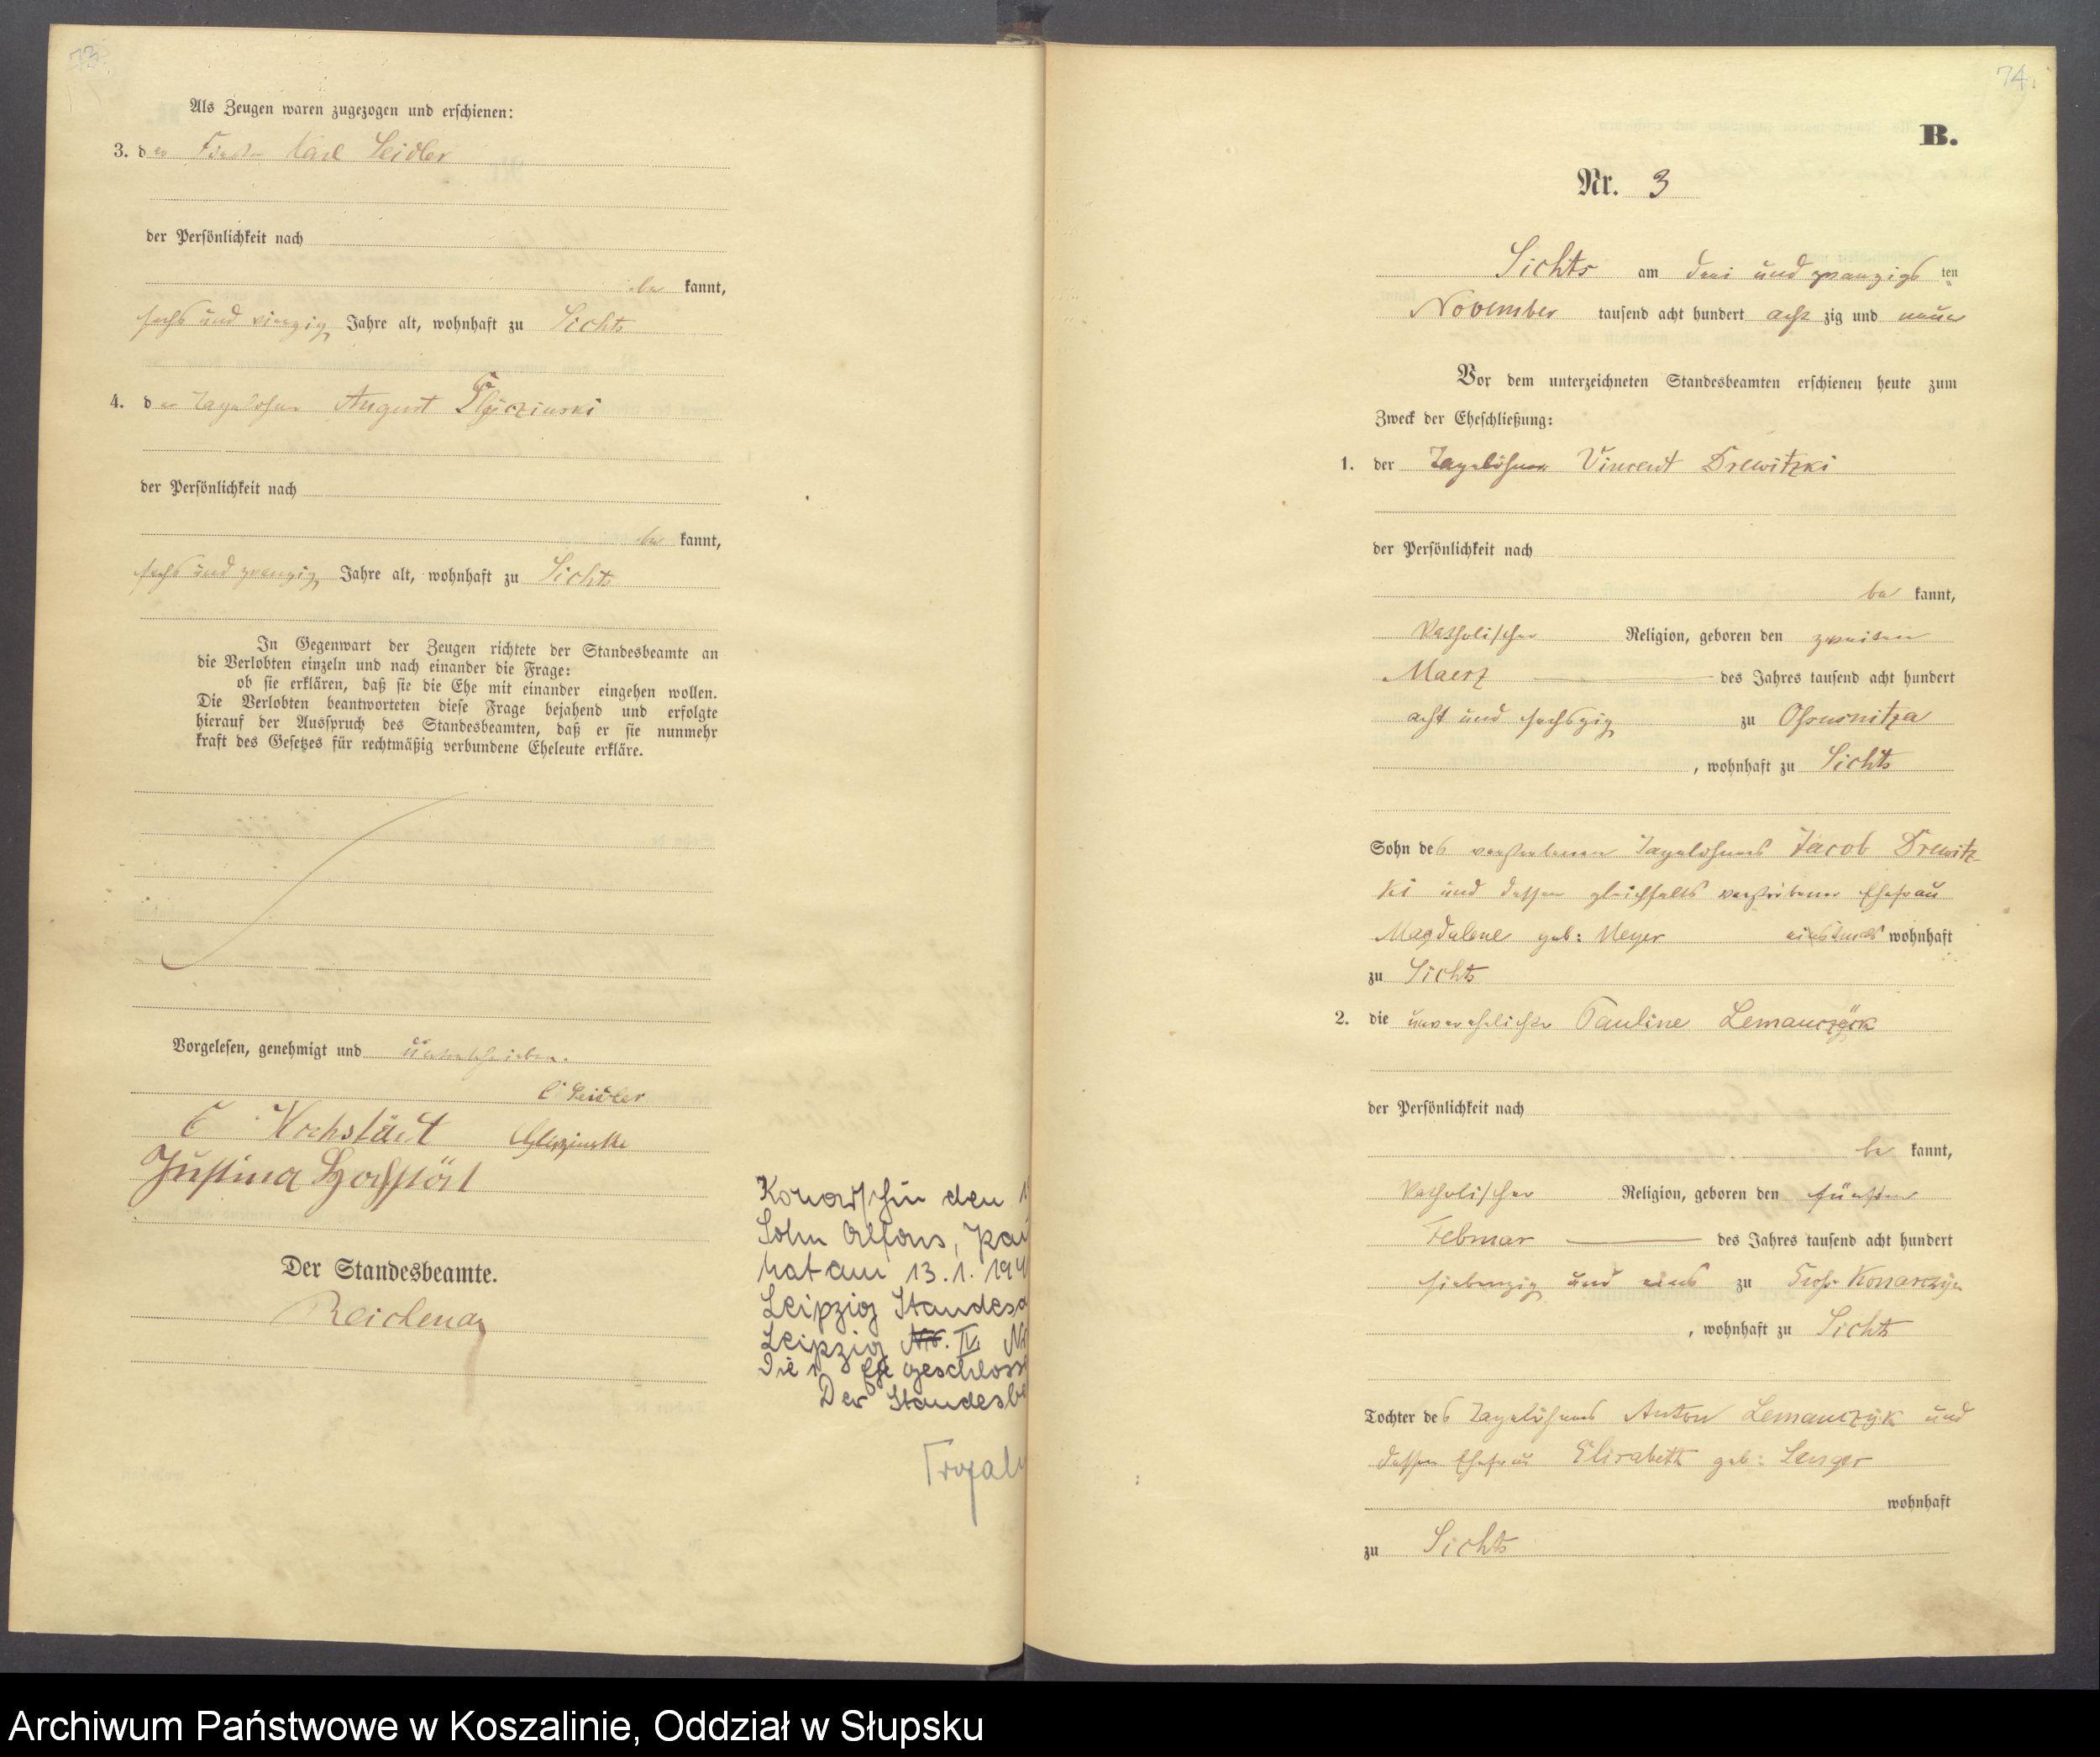 73.
Als Zeugen waren zugezogen und erschienen:
3. der Karl Seidler
der Persönlichkeit nach
be kannt,
sechs und vierzig Jahre alt, wohnhaft zu Sichts
4. der Tagelöhner August
der Persönlichkeit nach
be kannt,
sechs und zwanzig Jahre alt, wohnhaft zu Sichts
In Gegenwart der Zeugen richtete der Standesbeamte an
die Verlobten einzeln und nach einander die Frage:
ob sie erklären, daß sie die Ehe mit einander eingehen wollen.
Die Verlobten beantworteten diese Frage bejahend und erfolgte
hierauf der Ausspruch des Standesbeamten, daß er sie nunmehr
kraft des Gesetzes für rechtmäßig verbundene Eheleute erkläre.
Vorgelesen, genehmigt und unterschrieben.
C Seidler
Justina
Der Standesbeamte.
Reichenau
den
Sohn Alfons,
hat am 13. 1. 194
Leipzig Standesa
Leipzig Nr. IV, Nr
die 1. Ehe geschloss
Der Standesbe
74.
B.
Nr. 3
Sichts am drei und zwanzigs ten
November tausend acht hundert acht zig und neun
Vor dem unterzeichneten Standesbeamten erschienen heute zum
Zweck der Eheschließung:
1. der Tagelöhner Vincent Drewitzki
der Persönlichkeit nach
be kannt,
katholischer Religion, geboren den zweiten
Maerz des Jahres tausend acht hundert
acht und sechszig zu Ossusnitza
, wohnhaft zu Sichts
Sohn des verstorbenen Tagelöhners Jacob Drewitz-
ki und dessen gleichfalls verstorbener Ehefrau
Magdalene geb: Meyer wohnhaft
zu Sichts
2. die unverehelichte Pauline Lemanczyk
der Persönlichkeit nach
be kannt,
katholischer Religion, geboren den fünften
Februar des Jahres tausend acht hundert
siebenzig und eins zu Gross Konarczyn
, wohnhaft zu Sichts
Tochter des Tagelöhners Anton Lemanczyk und
dessen Ehefrau Elisabeth geb: Senger
wohnhaft
zu Sichts
Archiwum Państwowe w Koszalinie, Oddział w Słupsku